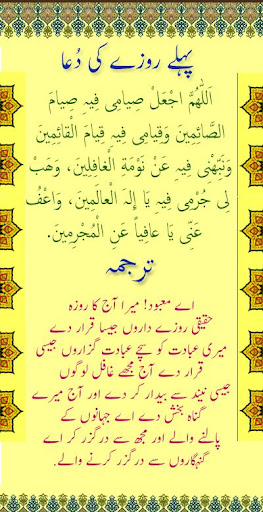 پہلے روزے کی دُعا
اَللّٰهُمَّ اجْعَلْ صِيامى فيهِ صِيامَ
الصّائِمينَ وَقِيامى فيهِ قِيامَ الْقائِمينَ
وَنَبِّهْنى فيهِ عَنْ نَوْمَةِ الْغافِلينَ، وَهَبْ
لى جُرْمى فيهِ يا اِلهَ الْعالَمينَ، وَاعْفُ
عَنّى يا عافِياً عَنِ الْمُجْرِمينَ.
ترجمہ
اے معبود! میرا آج کا روزہ
حقیقی روزے داروں جیسا قرار دے
میری عبادت کو سچے عبادت گزاروں جیسی
قرار دے آج مجھے غافل لوگوں
جیسی نیند سے بیدار کر دے اور آج میرے
گناہ بخش دے اے جہانوں کے
پالنے والے اور مجھ سے درگزر کر اے
گنہگاروں سے درگزر کرنے والے.